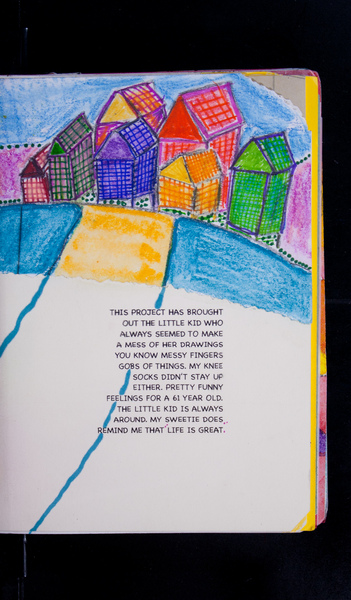 THIS PROJECT HAS BROUGHT
OUT THE LITTLE KID WHO
ALWAYS SEEMED TO MAKE
A MESS OF HER DRAWINGS
YOU KNOW MESSY FINGERS
GOBS OF THINGS. MY KNEE
SOCKS DIDN'T STAY UP
EITHER. PRETTY FUNNY
FEELINGS FOR A 61 YEAR OLD.
THE LITTLE KID IS ALWAYS
AROUND. MY SWEETIE DOES
REMIND ME THAT LIFE IS GREAT.